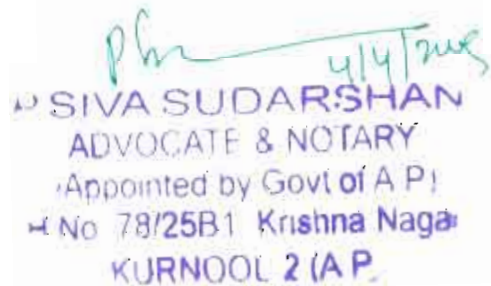 4/4/
P SIVA SUDARSHAN
ADVOCATE & NOTARY
Appointed by Govt of A P
H No 78/25B1 Krishna Naga
KURNOOL 2 (A P